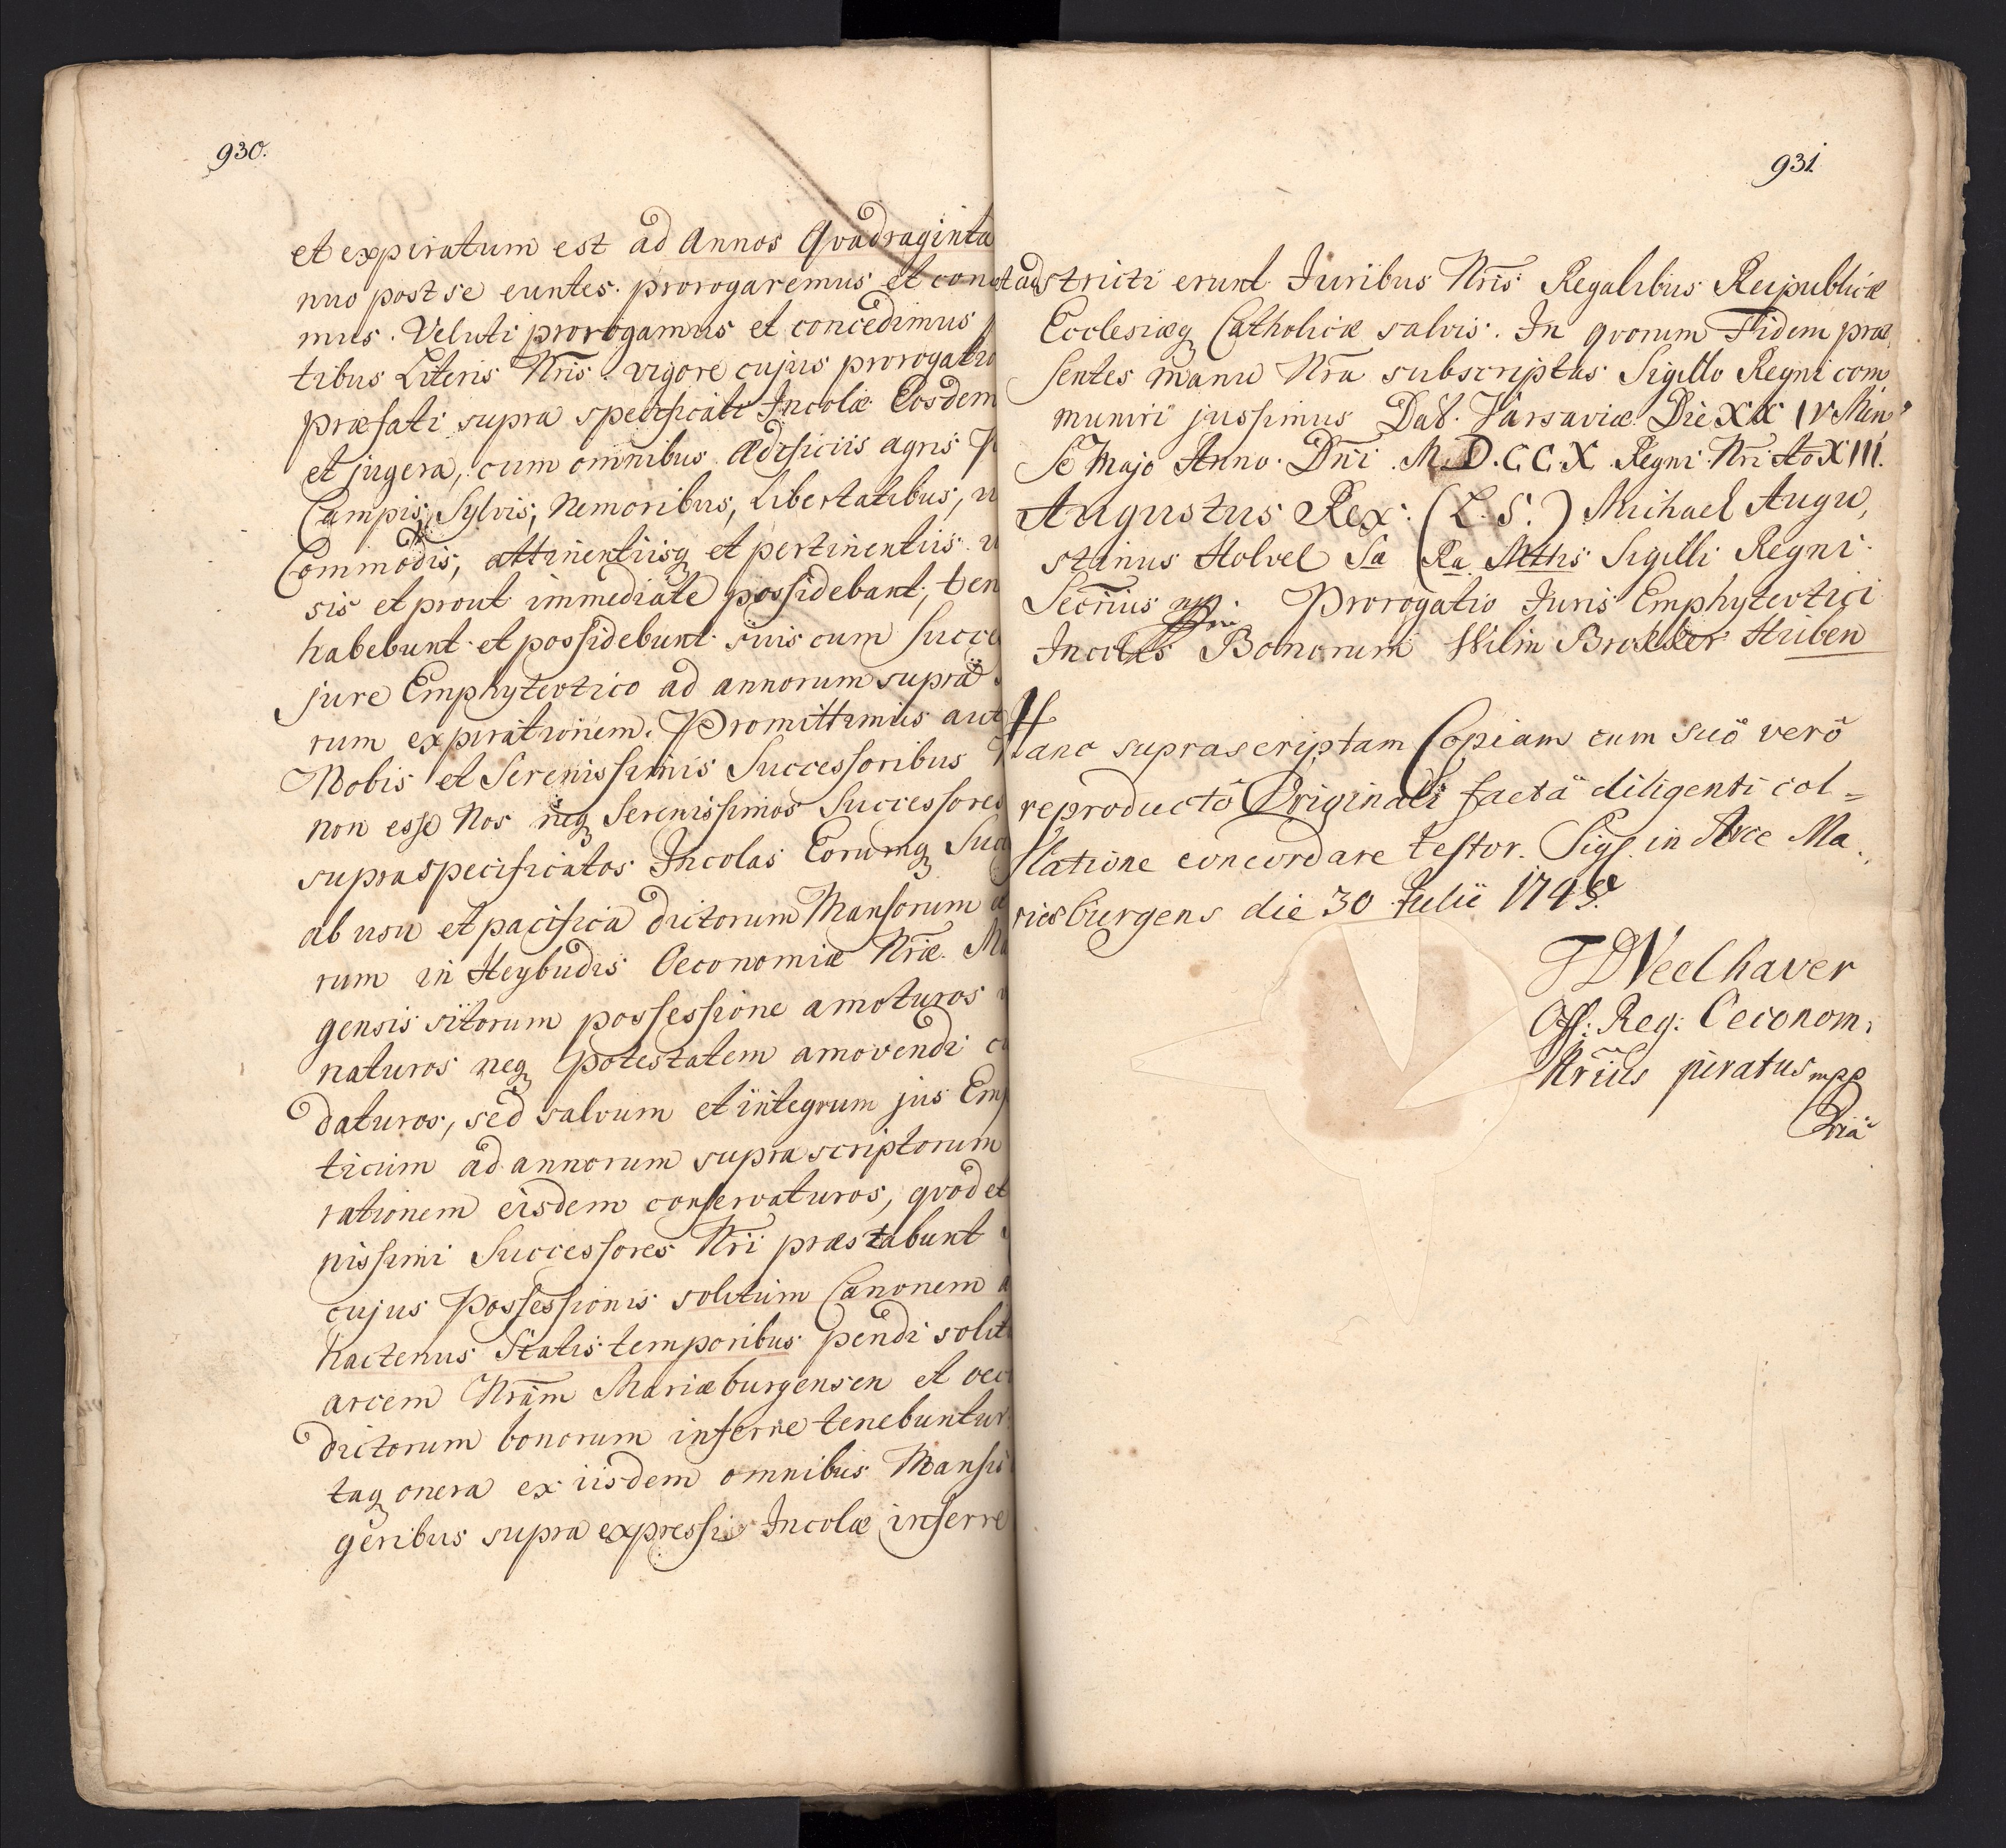 930.
et expiratum est ad Annos Qvadraginta
nuo post se euntes. prorogaremus et con
mus. Veluti prorogamus et concedimus
tibus Literis Nris. vigore cujus prorogatio
præfati supra specificati Incolæ Eosdem
et jugera, cum omnibus Ædificiis agris
Campis, Sylvis, Nemoribus, Libertatibus,
Commodis, attinentiisq et pertinentiis
sis et prout immediate possidebant, ten
habebunt et possidebunt suis cum Succe
jure Emphytevtico ad annorum supra
rum expirationem. Promittimus aut
Nobis et Serenissimis Successoribus
non esse Nos neq Serenissimos Successores
supraspecificatos Incolas Eorumq Suc
ab usu et pacifica dictorum Mansorum
rum in Heybudis Oeconomiæ Nræ. Ma
gensis sitorum possessione amoturos
naturos neq potestatem amovendi
daturos, sed salvum et integrum jus Emp
ticum ad annorum suprascriptorum
rationem eisdem conservaturos, qvod et
nissimi Successores Nri præstabunt
cujus Possessionis solitum Canonem
hactenus Statis temporibus pendi solit
arcem Nram Mariæburgensen et oec
dictorum bonorum inferre tenebuntur
taq onera ex iisdem omnibus Mansis
geribus supra expressis Incolæ inferre
931
et adstricti erunt Juribus Nris Regalibus Reipublicæ
Ecclesiæq Catholicæ salvis. In qvorum Fidem præ,
sentes manu Nra subscriptas Sigillo Regni com
muniri jussimus Dat. Varsaviæ Die XX IV Men
se Majo Anno Dni M.D.C.C.X. Regni Nri Ao XIII.
Augustus Rex. (L.S.) Michael Augu,
stinus Holvel Sa Ra Mttis Sigilli Regni
Secrius mp. Prorogatio Juris Emphytevtici
Incolis Bonorum Wilm Brokker Huben
Hanc suprascriptam Copiam cum suo vero
reproducto Originali facta diligenti col=
latione concordare testor. Sig. in Arce Ma.,
riæburgens die 30 Julii
Weelhaver
Off: Reg: Oeconom:
Nrius juratus mpp
pria